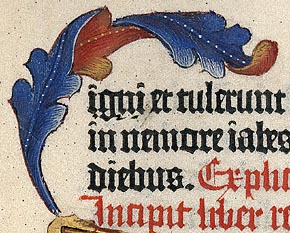 igni et tulerunt
in nemore iabes
diebus. Explic
Incipit liber re